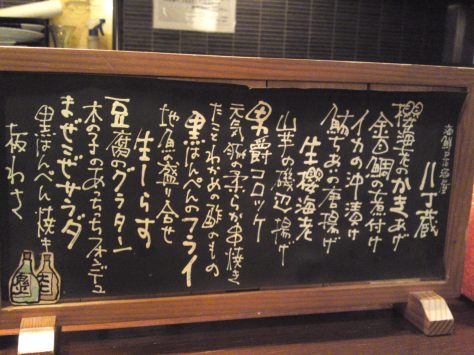 海鮮居酒屋
八丁蔵
櫻海老のかきあげ
金目鯛の煮付け
イカの沖漬け
鮪ちあいの唐揚げ
生櫻海老
山芋の磯辺揚げ
男爵コロッケ
元気豚の柔らか串焼き
たことわかめの酢のもの
黒はんぺんのフライ
地魚の盛り合せ
生しらす
豆腐のグラタン
木の子のあちっちフォンデュ
まぜこぜサラダ
黒はんぺん焼き
板わさ